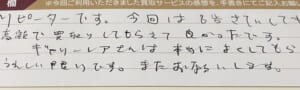 欄 ※今回ご利用いただきました買取サービスの感想を、手書会にてご記入します
リピーターです。今回は
高額で買取りしてもらえて良かったです。
ギャラリーレアさんは本当によくしてもら
うれしい限りです。またおねがいします。